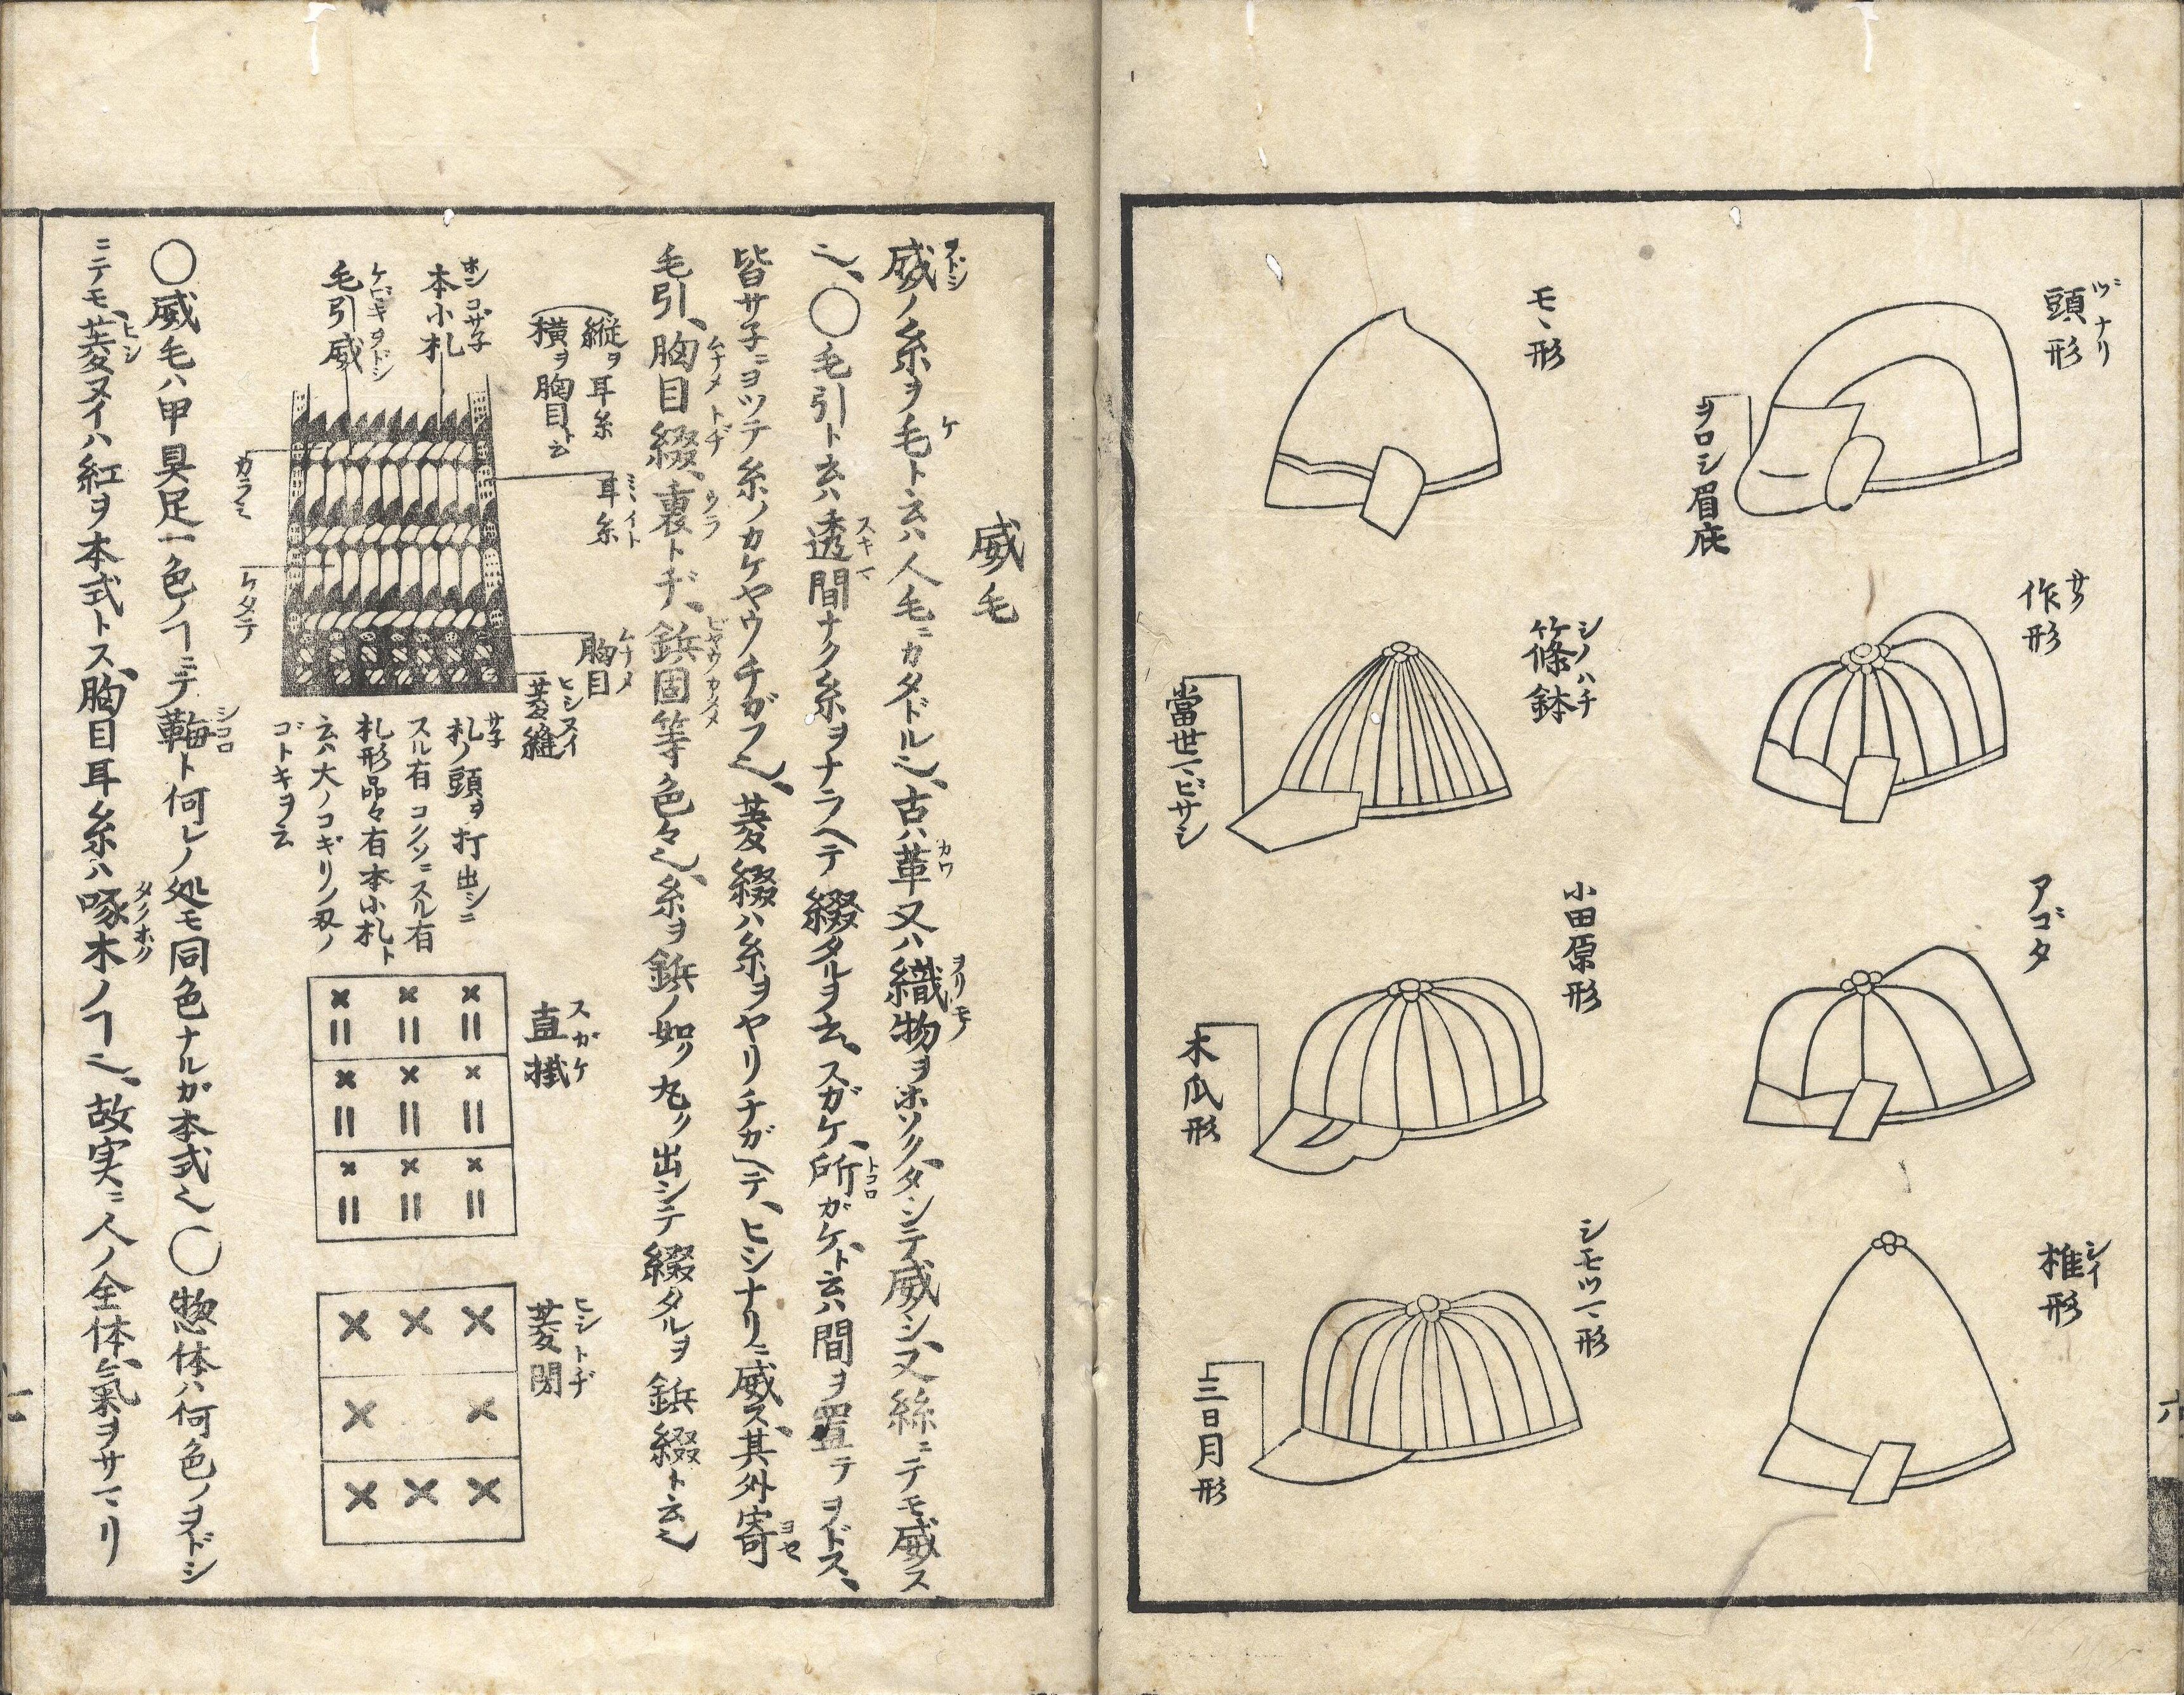 頭形
ヅナリ
ヲロシ眉庇
作形
サク
アゴタ
椎形
シイ
モヽ形
篠鉢
シノハチ
當世マビサシ
小田原形
木瓜形
シモツマ形
三日月形
六
威毛
威ノ糸ヲ毛ト云ハ人毛ニカタドル也、古ハ革又ハ織物ヲホソクタヽシテ威シ、又絲ニテモ威ス
ヲドシ
ケ
カワ
ヲリモノ
也、○毛引ト云ハ透間ナク糸ヲナラヘテ綴タルヲ云、スガケ、所ガケト云ハ間ヲ置テヲドス、
スキマ
トコロ
皆サ子ニヨツテ糸ノカケヤウチガフ也、菱綴ハ糸ヲヤリチガヘテ、ヒシナリニ威ス、其外寄
ヨセ
毛引、胸目綴、裏トヂ、鋲固等色々也、糸ヲ鋲ノ如ク丸ク出シテ綴タルヲ鋲綴ト云也
ムナメトヂ
ウラ
ビヤウカタメ
縦ヲ耳糸
横ヲ胸目ト云
本小札
ホンコザ子
毛引威
ケビキヲドシ
耳糸
ミヽイト
胸目
ムナメ
菱縫
ヒシヌイ
カラミ
ケタテ
札ノ頭ヲ打出シニ
サ子
スル有コクソニスル有
札形品々有本小札ト
云ハ大ノコギリノ刄ノ
ゴトキヲ云
直掛
スガケ
菱閉
ヒシトヂ
○威毛ハ甲具足一色ノヿニテ鞠ト何レノ処モ同色ナルガ本式也○惣体ハ何色ノヲドシ
シコロ
ニテモ、菱ヌイハ紅ヲ本式トス、胸目耳糸ハ啄木ノヿ也、故実ニ人ノ全体氣ヲサマリ
ヒシ
タクボク